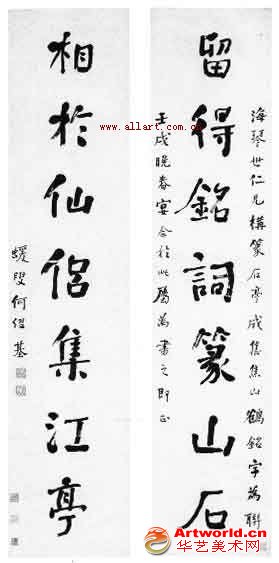 留得銘詞篆山石
海琴世仁兄構篆石亭成集焦山鶴銘字為聯
壬戌晚春宴合於此屬為書之即正
相於仙侶集江亭
蝯叟何紹基
www.allart.com.cn
Artworld.cn
华艺美术网